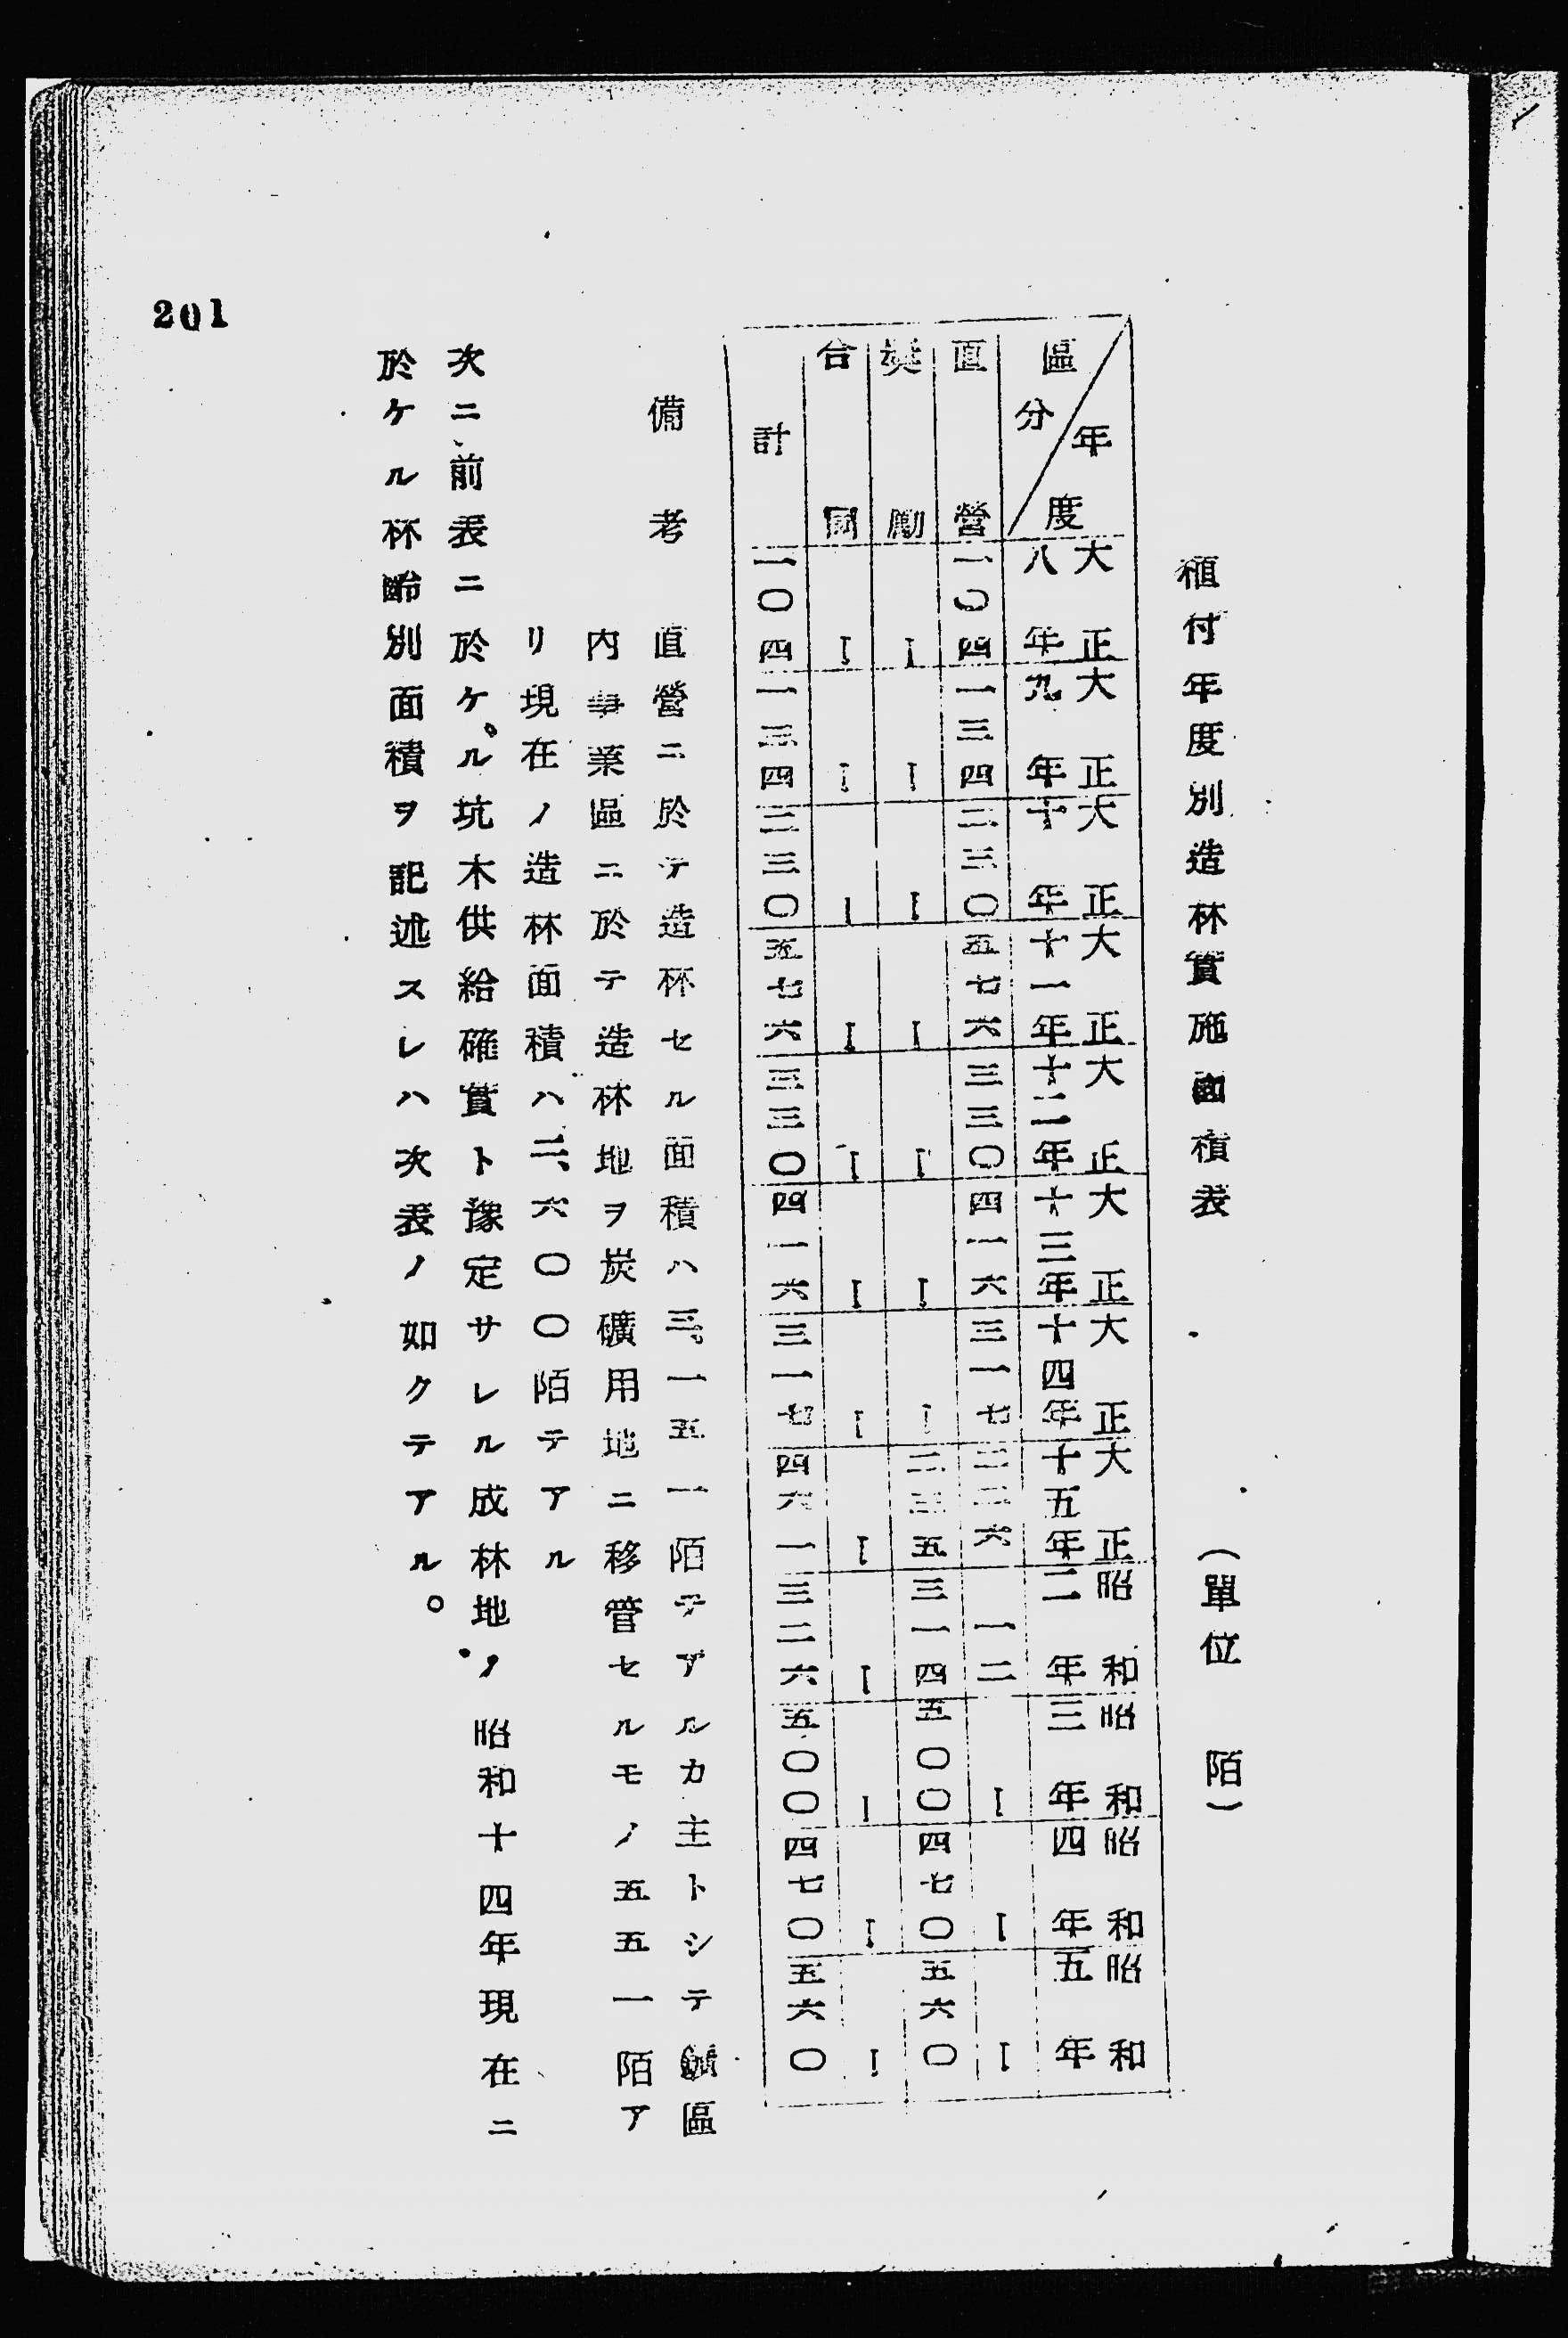 植付年度別造林實施面積表　（單位　陌）
區分／年度　大正八年　大正九年　大正十年　大正十一年　大正十二年　大正十三年　大正十四年　大正十五年　昭和二年　昭和三年　昭和四年　昭和五年
直營　一〇四　一三四　二三〇　五七六　三三〇　四一六　三一七　二二六　一二　ー　ー　ー
奬勵　ー　ー　ー　ー　ー　ー　ー　二三五　三一四　五〇〇　四七〇　五六〇
合同　ー　ー　ー　ー　ー　ー　ー　ー　ー　ー　ー　ー
計　一〇四　一三四　二三〇　五七六　三三〇　四一六　三一七　四六一　三二六　五〇〇　四七〇　五六〇
備考　直營ニ於テ造林セル面積ハ三、一五一陌テアルカ主トシテ鑛區
内事業區ニ於テ造林地ヲ炭礦用地ニ移管セルモノ五五一陌ア
リ現在ノ造林面積ハ二、六〇〇陌テアル
次ニ前表ニ於ケル坑木供給確實ト豫定サレル成林地ノ昭和十四年現在ニ
於ケル林齡別面積ヲ記述スレハ次表ノ如クテアル。
201